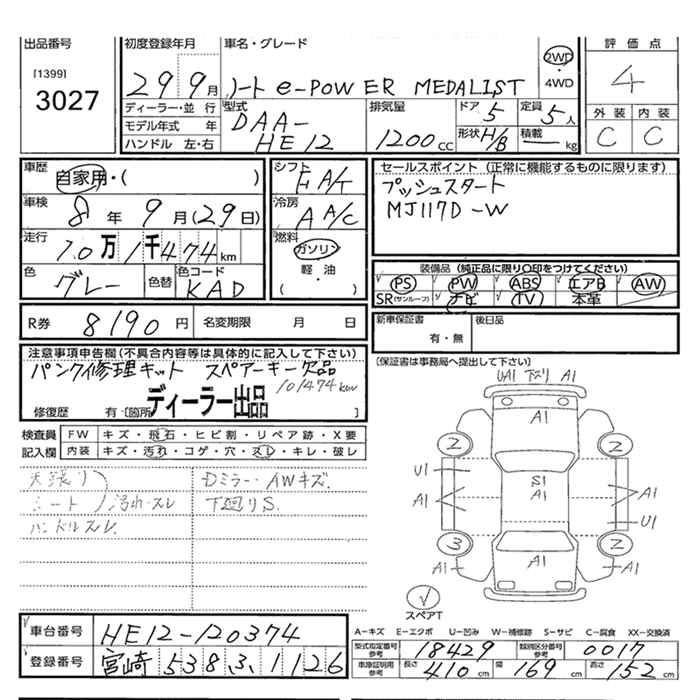 出品番号
[1399]
3027
初度登録年月
29 9月
車名・グレード
ノート e-POWER MEDALIST
2WD
・4WD
評価点
4
外装 内装
C C
ディーラー・並行
モデル年式 年
ハンドル 左・右
型式
DAA-
HE12
排気量
1200cc
ドア 5
形状 H/B
定員 5人
積載 ― kg
車歴
自家用・( )
シフト
FA/T
車検
8年 9月(29日)
冷房
AA/C
走行
10万 1千474km
燃料
ガソリン
軽・油
( )
色
グレー
色替
色コード
KAD
セールスポイント (正常に機能するものに限ります)
プッシュスタート
MJ117D-W
装備品 (純正品に限り○印をつけてください)
PS PW ABS エアB AW
SR(サンルーフ) ナビ TV 本革
R券 8190円
名変期限 月 日
新車保証書
有・無
後日品
(保証書は事務局へ提出して下さい)
注意事項申告欄(不具合内容等は具体的に記入して下さい)
パンク修理キット スペアーキー欠品
101474km
ディーラー出品
修復歴 有・[箇所 ]
検査員
記入欄
FW キズ・飛石・ヒビ割・リペア跡・X要
内装 キズ・汚れ・コゲ・穴・スレ・キレ・破レ
天張り
シート 汚れ・スレ
ハンドルスレ
Dミラー・AWキズ.
下廻りS.
UA1 下廻り A1
A1
2 2
U1
A1
S1
A1
A1
U1
3 2
A1 A1 A1
√
スペアT
A―キズ E―エクボ U―凹み W―補修跡 S―サビ C―腐食 XX―交換済
車台番号 HE12-120374
登録番号 宮崎 538 ふ 1126
型式指定番号
参考
18429
類別区分番号
参考
0017
車庫証明用
参考
長さ 410 cm
幅 169 cm
高さ 152 cm